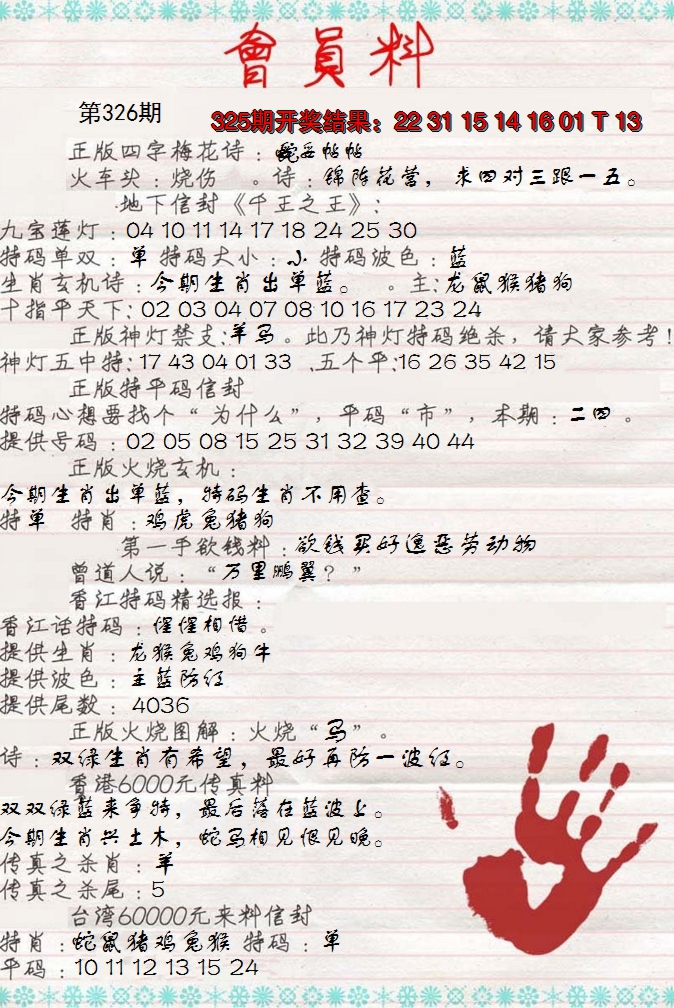 會員料
第326期
325期开奖结果：22 31 15 14 16 01 T 13
正版四字梅花诗：蛇妥帖帖
火车头：烧伤 。诗：锦阵花营，求四对三跟一五。
地下信封《千王之王》：
九宝莲灯：04 10 11 14 17 18 24 25 30
特码单双：单 特码大小：小 特码波色：蓝
生肖玄机诗：今期生肖出单蓝。 。主：龙鼠猴猪狗
十指平天下：02 03 04 07 08 10 16 17 23 24
正版神灯禁支：羊马。此乃神灯特码绝杀，请大家参考！
神灯五中特：17 43 04 01 33 .五个平：16 26 35 42 15
正版特平码信封
特码心想要找个“为什么”，平码“市”，本期：二四。
提供号码：02 05 08 15 25 31 32 39 40 44
正版火烧玄机：
今期生肖出单蓝，特码生肖不用查。
特单 特肖：鸡虎兔猪狗
第一手欲钱料：欲钱买好逸恶劳动物
曾道人说：“万里鹏翼？”
香江特码精选报：
香江话特码：惺惺相惜。
提供生肖：龙猴兔鸡狗牛
提供波色：主蓝防红
提供尾数：4036
正版火烧图解：火烧“马”。
诗：双绿生肖有希望，最好再防一波红。
香港6000元传真料
双双绿蓝来争特，最后落在蓝波上。
今期生肖兴土木，蛇马相见恨见晚。
传真之杀肖：羊
传真之杀尾：5
台湾60000元来料信封
特肖：蛇鼠猪鸡兔猴 特码：单
平码：10 11 12 13 15 24